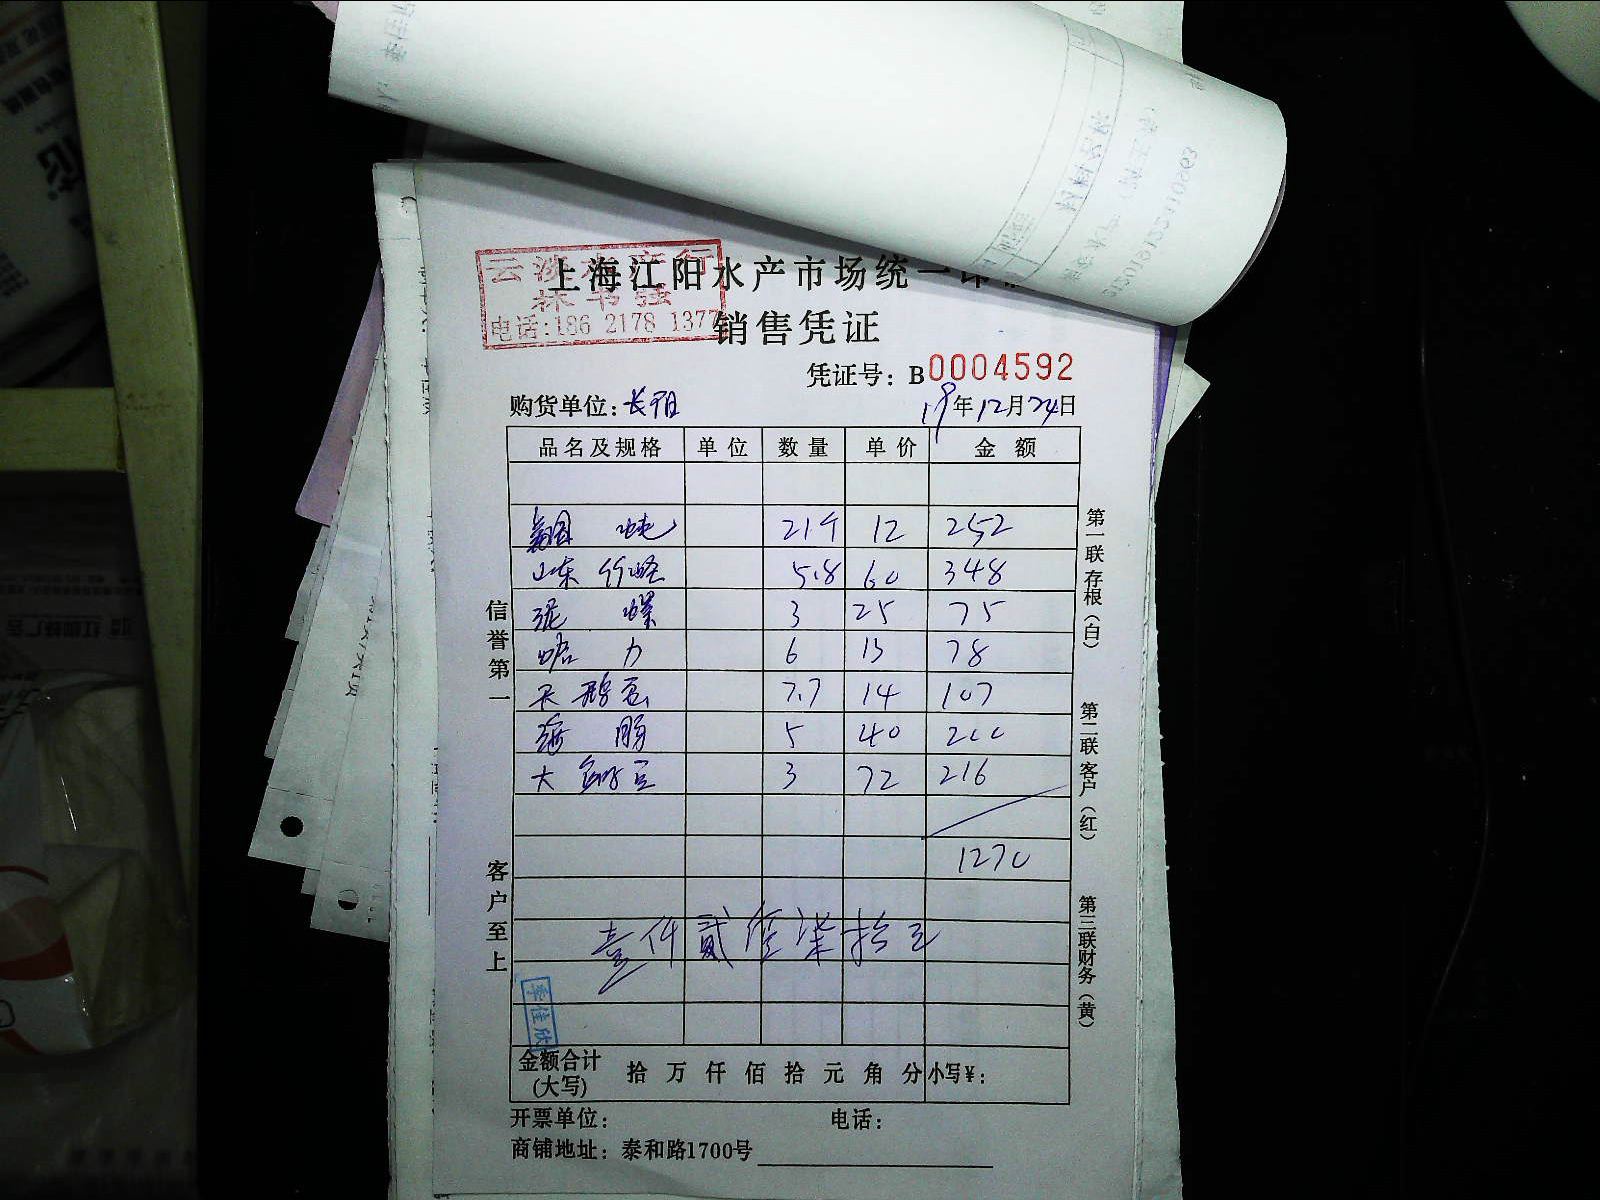 云淡水产行
林书强
电话:186 2178 1377
上海江阳水产市场统一印
销售凭证
凭证号：B0004592
购货单位：长阳 19年12月24日
品名及规格 单位 数量 单价 金额
21斤 12 252
山东 竹蛏 5.8 60 348
泥 螺 3 25 75
蛤 力 6 13 78
天鹅蛋 7.7 14 107
海肠 5 40 200
大 3 72 216
1270
壹仟贰佰柒拾元
李佳欣
金额合计(大写) 拾万仟佰拾元角分 小写¥：
开票单位： 电话：
商铺地址：泰和路1700号
信誉第一 客户至上
第一联存根(白)
第二联客户(红)
第三联财务(黄)